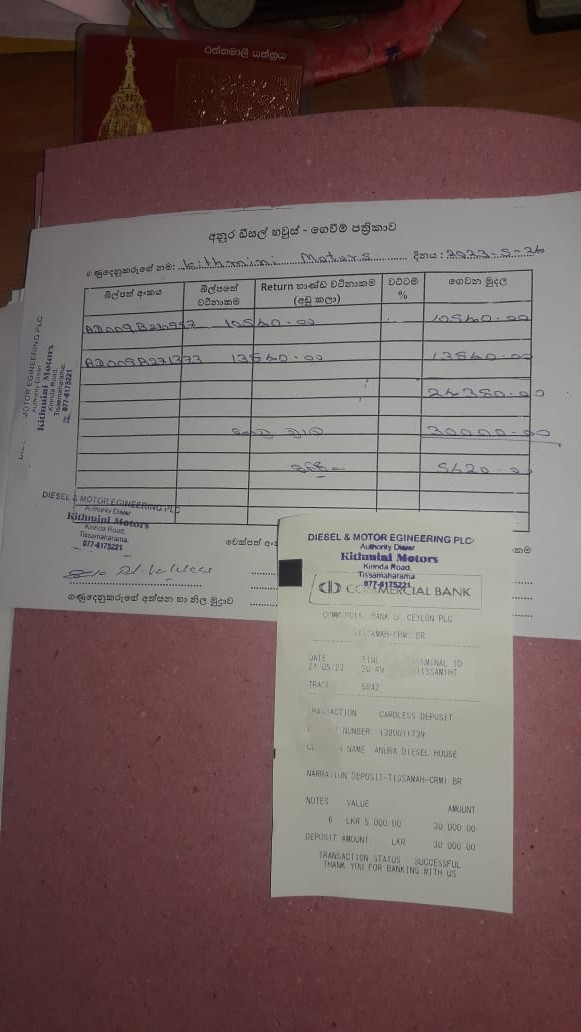 රත්නමාලි යන්ත්‍රය
අනුර ඩීසල් හවුස් - ගෙවීම් පත්‍රිකාව
ගණුදෙනුකරුගේ නම: Kithmini Motors දිනය : 2023-5-26
බිල්පත් අංකය
බිල්පතේ වටිනාකම
Return භාණ්ඩ වටිනාකම (අඩු කලා)
වට්ටම් %
ගෙවන මුදල
10540.00 10540.00
13540.00 13540.00
24380.00
30000.00
5420.00
MOTOR EGINEERING PLC
Authority Dealer
Kithmini Motors
Kirinda Road,
Tissamaharama.
077-6175221
DIESEL & MOTOR EGINEERING PLC
Authority Dealer
Kithmini Motors
Kirinda Road,
Tissamaharama.
077-6175221
චෙක්පත් අං
ගණුදෙනුකරුගේ අත්සන හා නිල මුද්‍රාව
DIESEL & MOTOR EGINEERING PLC
Authority Dealer
Kithmini Motors
Kirinda Road,
Tissamaharama.
077-6175221
COMMERCIAL BANK
COMMERCIAL BANK OF CEYLON PLC
TISSAMAH-CRM1 BR
DATE TIME TERMINAL ID
24 05 23 20 49 TISSAM1HT
TRACE 5842
TRANSACTION CARDLESS DEPOSIT
NUMBER 1380011739
NAME ANURA DIESEL HOUSE
NARRATION DEPOSIT-TISSAMAH-CRM1 BR
NOTES VALUE AMOUNT
6 LKR 5 000 00 30 000 00
DEPOSIT AMOUNT: LKR 30 000 00
TRANSACTION STATUS SUCCESSFUL
THANK YOU FOR BANKING WITH US